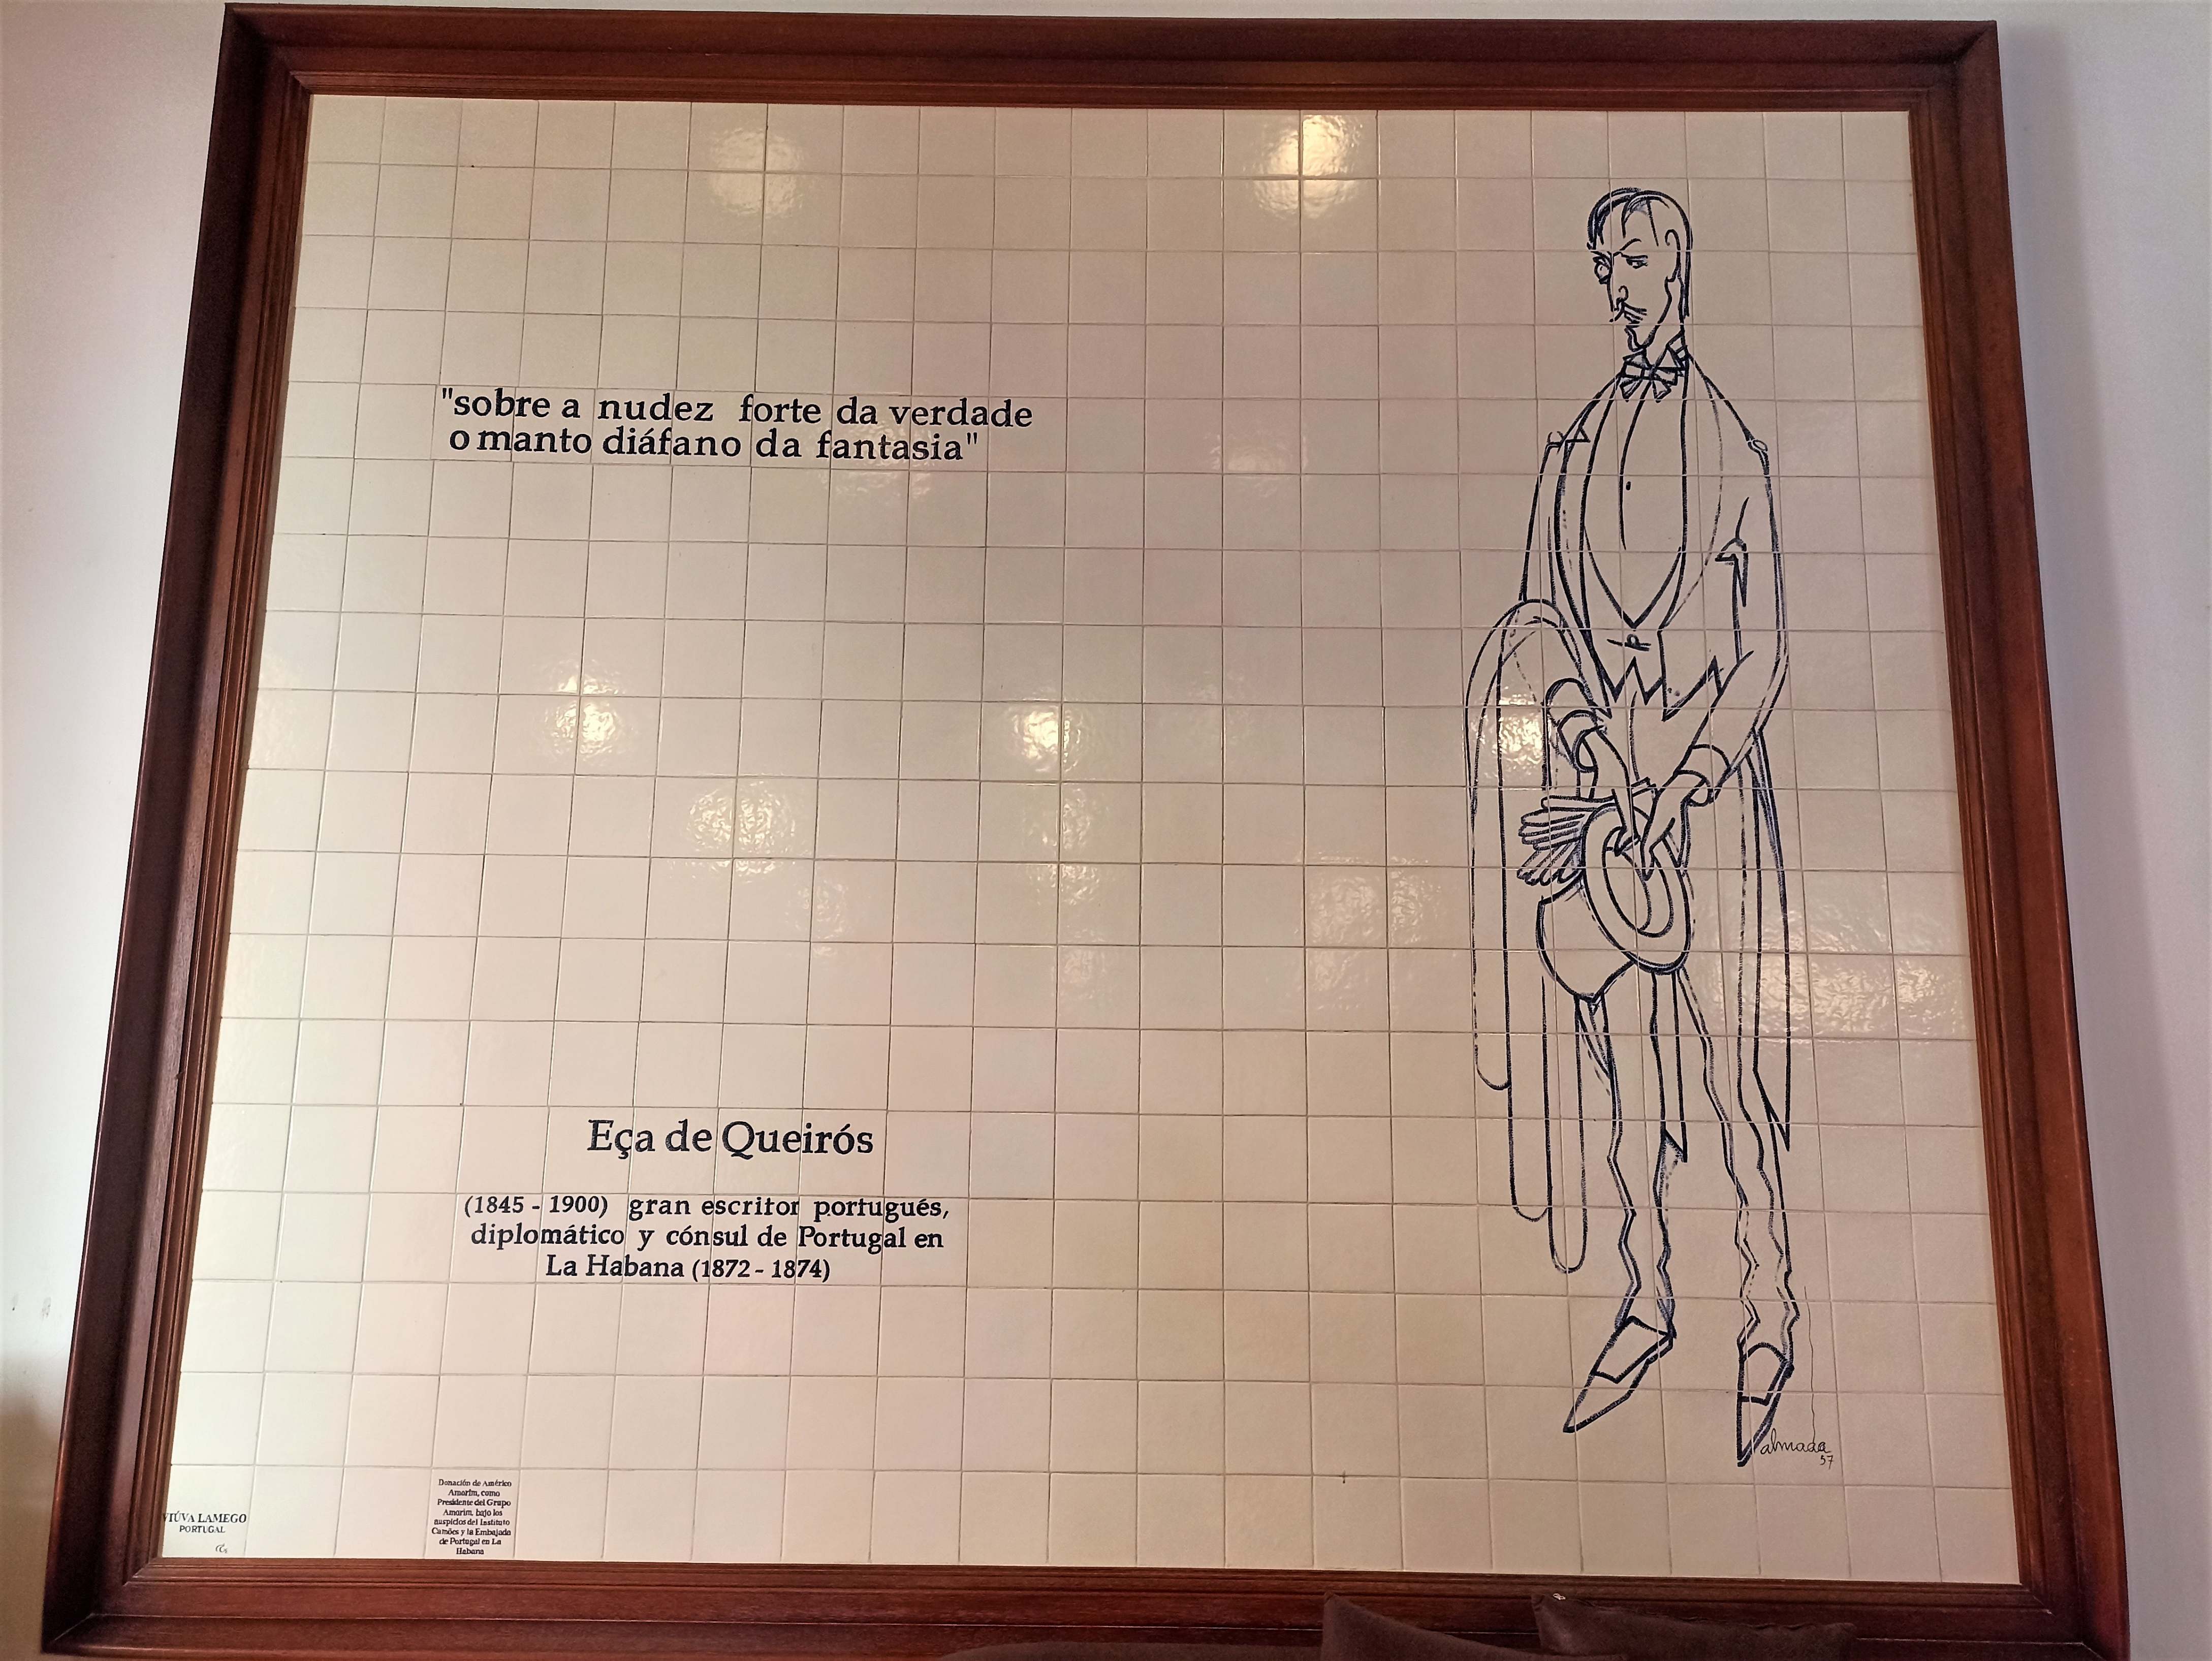 "sobre a nudez forte da verdade
o manto diáfano da fantasia"
Eça de Queirós
(1845 - 1900) gran escritor portugués,
diplomático y cónsul de Portugal en
La Habana (1872 - 1874)
almada
57
Donación de Américo
Amorim, como
Presidente del Grupo
Amorim, bajo los
auspicios del Instituto
Camões y la Embajada
de Portugal en La
Habana
VIÚVA LAMEGO
PORTUGAL